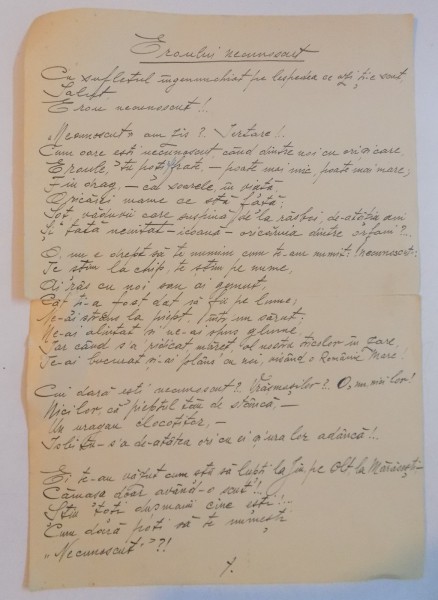 Eroului necunoscut
Cu sufletul îngenunchiat pe lespedea ce azi ți-e scut
Salut
Erou necunoscut!..
„Necunoscut" am zis?. Iertare!.
Cum oare ești necunoscut, când dintre noi cu oricare,
Eroule, tu poți frate, — poate mai mic, poate mai mare;
Fiu drag, — ca soarele, în viață
Oricărei mame ce stă față;
Soț văduvii care suspină de la răsboi de-atâția ani
Și tată neuitat – icoană – oricăruia dintre orfani?...
O, nu e drept să te numim cum te-am numit: necunoscut;
Te știm la chip, te știm pe nume,
Ai râs cu noi sau ai gemut
Cât ți-a fost dat să fii pe lume;
Ne-ai strâns la piept, într'un sărut,
Ne-ai alintat și ne-ai spus glume
Iar când s'a măreț, al nostru tricolor în zare,
Te-ai bucurat și-ai plâns cu noi, visând o Românie Mare!
Cui dară ești necunoscut?. Vrăjmașilor?.. O, nu, nici lor!
Nici lor, că pieptul tău de stâncă, —
Un uragan clocotitor, —
Isbitu-s'a de-atâtea ori cu ei și'n ura lor adâncă!..
Ei te-au văzut cum știi să lupți la Jiu, pe Olt la Mărășești —
Cămașa doar având-o scut!..
Știu toți dușmanii cine ești!..
Cum dară poți să te numești
„Necunoscut"?!